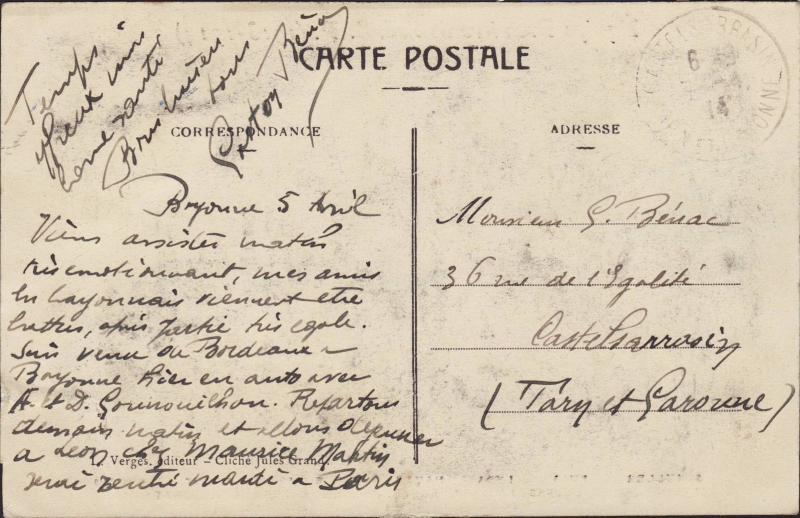 Temps
affreux mais
bonne santé
Bons baisers
à tous
Gaston Bénac
CARTE POSTALE
CORRESPONDANCE
Bayonne 5 Avril
Viens assister match
très émotionnant, mes amis
les bayonnais viennent être
battus, après partie très égale.
Suis venu de Bordeaux à
Bayonne hier en auto avec
A. et D. Gounouilhou. Repartons
demain matin et allons déjeuner
à Léon chez Maurice Martin
serai rentré mardi à Paris
L. Vergès, éditeur – Cliché Jules Grand.
ADRESSE
Monsieur G. Bénac
36 rue de l'Egalité
Castelsarrasin
(Tarn et Garonne)
6
14